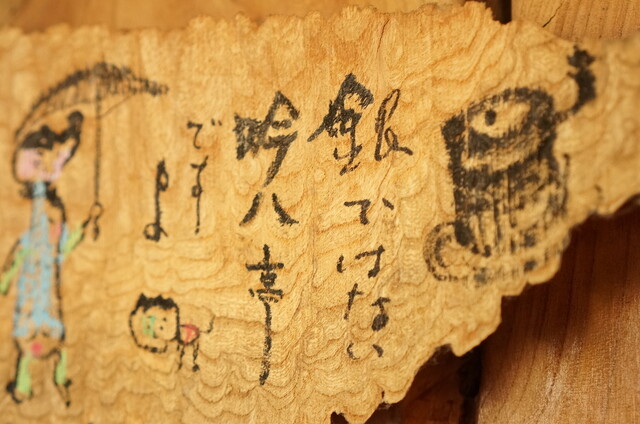 銀ではない
吟八亭
ですよ